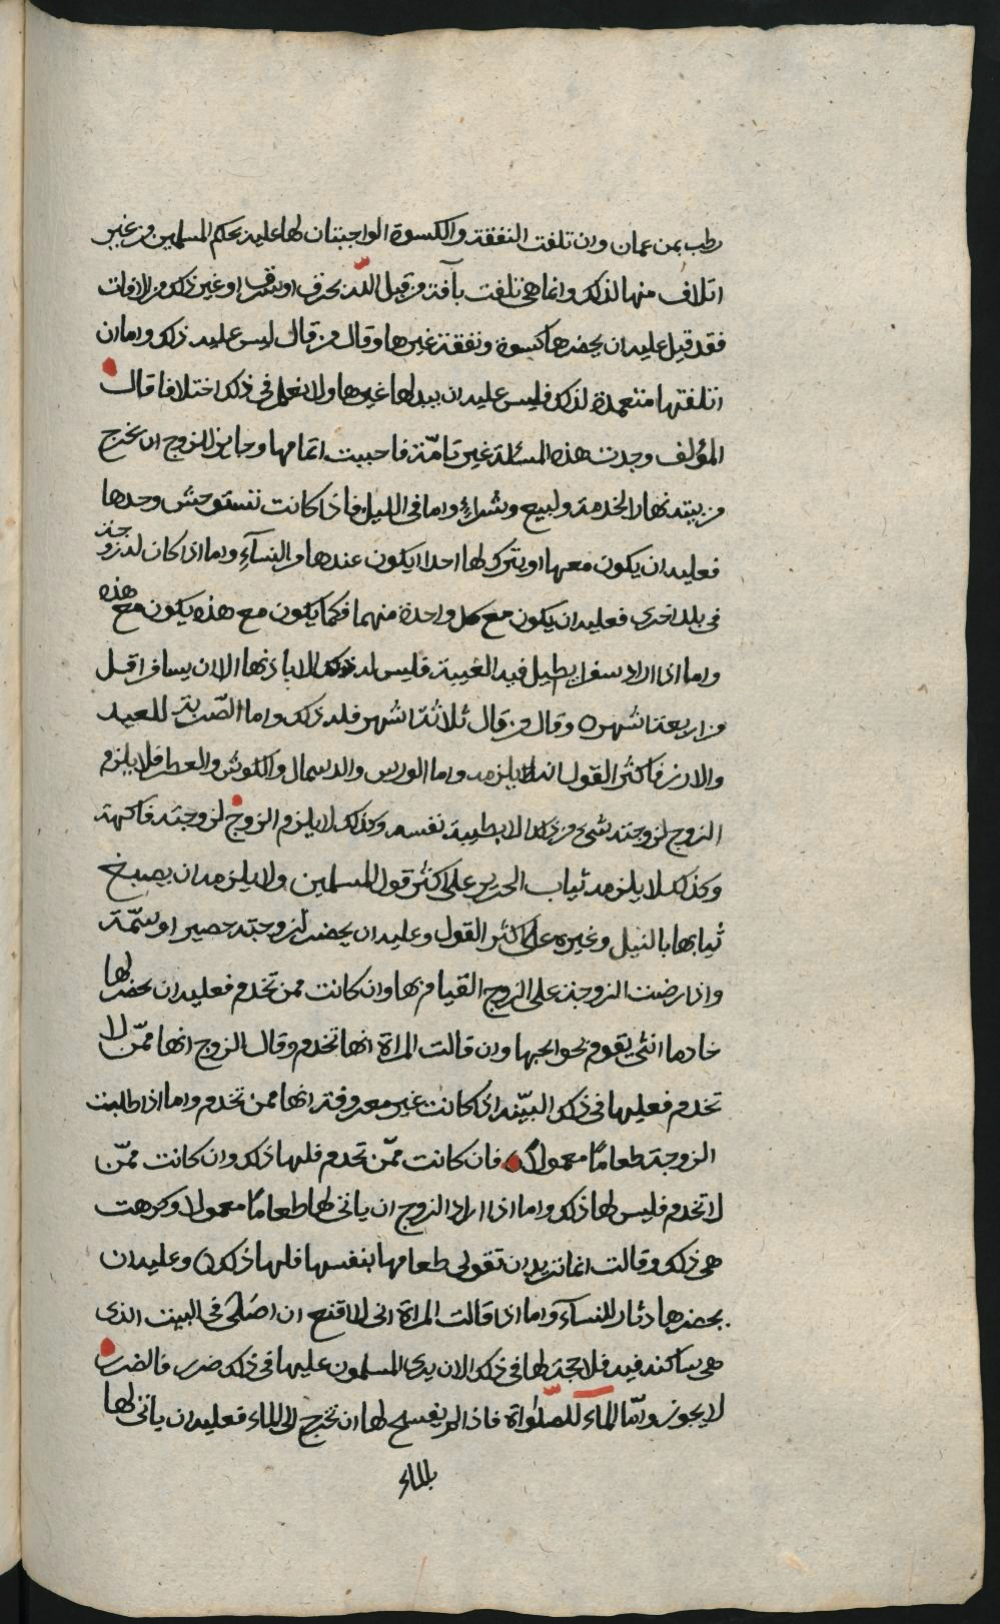 رطب بمن عمان وان تلفت النفقة والكسوة الواجبتان لها عليه بحكم المسلمين من غير
اتلاف منها لذلك وانما هي تلفت بآفة من قبل الله بحرق او بشرق او غير ذلك من الافات
فقد قيل عليه ان يحضرها كسوة ونفقة غيرها وقال من قال ليس عليه ذلك واما ان
اتلفتها متعمدة لذلك فليس عليه ان يبدلها غيرها ولا نعلم في ذلك اختلافا قال
المؤلف وجدت هذه المسئلة غير تامّة فاحببت اتمامها وجايز للزوج ان يخرج
من بيته نهارا لخدمة ولبيع وشراءٍ واما في الليل فاذا كانت تستوحش وحدها
فعليه ان يكون معها او يترك لها احدا يكون عندها من النسآءِ واما اذا كان له زوجة
في بلد اخرى فعليه ان يكون مع كل واحدة منهما فكما يكون مع هذه يكون مع هذه
واما اذا اراد سفرا يطيل فيه الغيبة فليس له ذلك الا باذنها الا ان يسافر اقل
من اربعة اشهر ٥ وقال من قال ثلاثة اشهر فله ذلك واما الضّريبة للعيد
والارز فاكثر القول انه لا يلزمه واما الورس والدسمال والكوش والعطر فلا يلزم
الزوج لزوجته شيء من ذلك الا بطيبة نفسه وكذلك لا يلزم الزوج لزوجته فاكهة
وكذلك لا يلزمه ثياب الحرير على اكثر قول المسلمين ولا يلزمه ان يصبغ
ثيابها بالنيل وغيره على اكثر القول وعليه ان يحضر لزوجته حصير او سمّة
واذا رضت الزوجة على الزوج القيام بها وان كانت ممن تخدم فعليه ان يحضر لها
خادما انثى يقوم بحوايجها وان قالت المراة انها تخدم وقال الزوج انها ممّن لا
تخدم فعليها في ذلك البيّنة اذا كانت غير معروفة انها ممن تخدم واما اذا طلبت
الزوجة طعامًا معمولاً ٥ فان كانت ممّن تخدم فلها ذلك وان كانت ممّن
لا تخدم فليس لها ذلك واما اذا اراد الزوج ان ياتي لها طعامًا معمولا وكرهت
هي ذلك وقالت انما تريد ان تقولى طعامها بنفسها فلها ذلك ٥ وعليه ان
يحضرها دثار للنسآء واما اذا قالت المراة اني لا اقنع ان اصلى في البيت الذى
هي ساكنة فيه فلا حجة لها في ذلك الا ان يرى المسلمون عليها في ذلك ضرر فالضرر
لا يجوز وامّا المآء للصلواة فاذا لم يفسح لها ان تخرج الى المآء فعليه ان ياتى لها
بالمآء